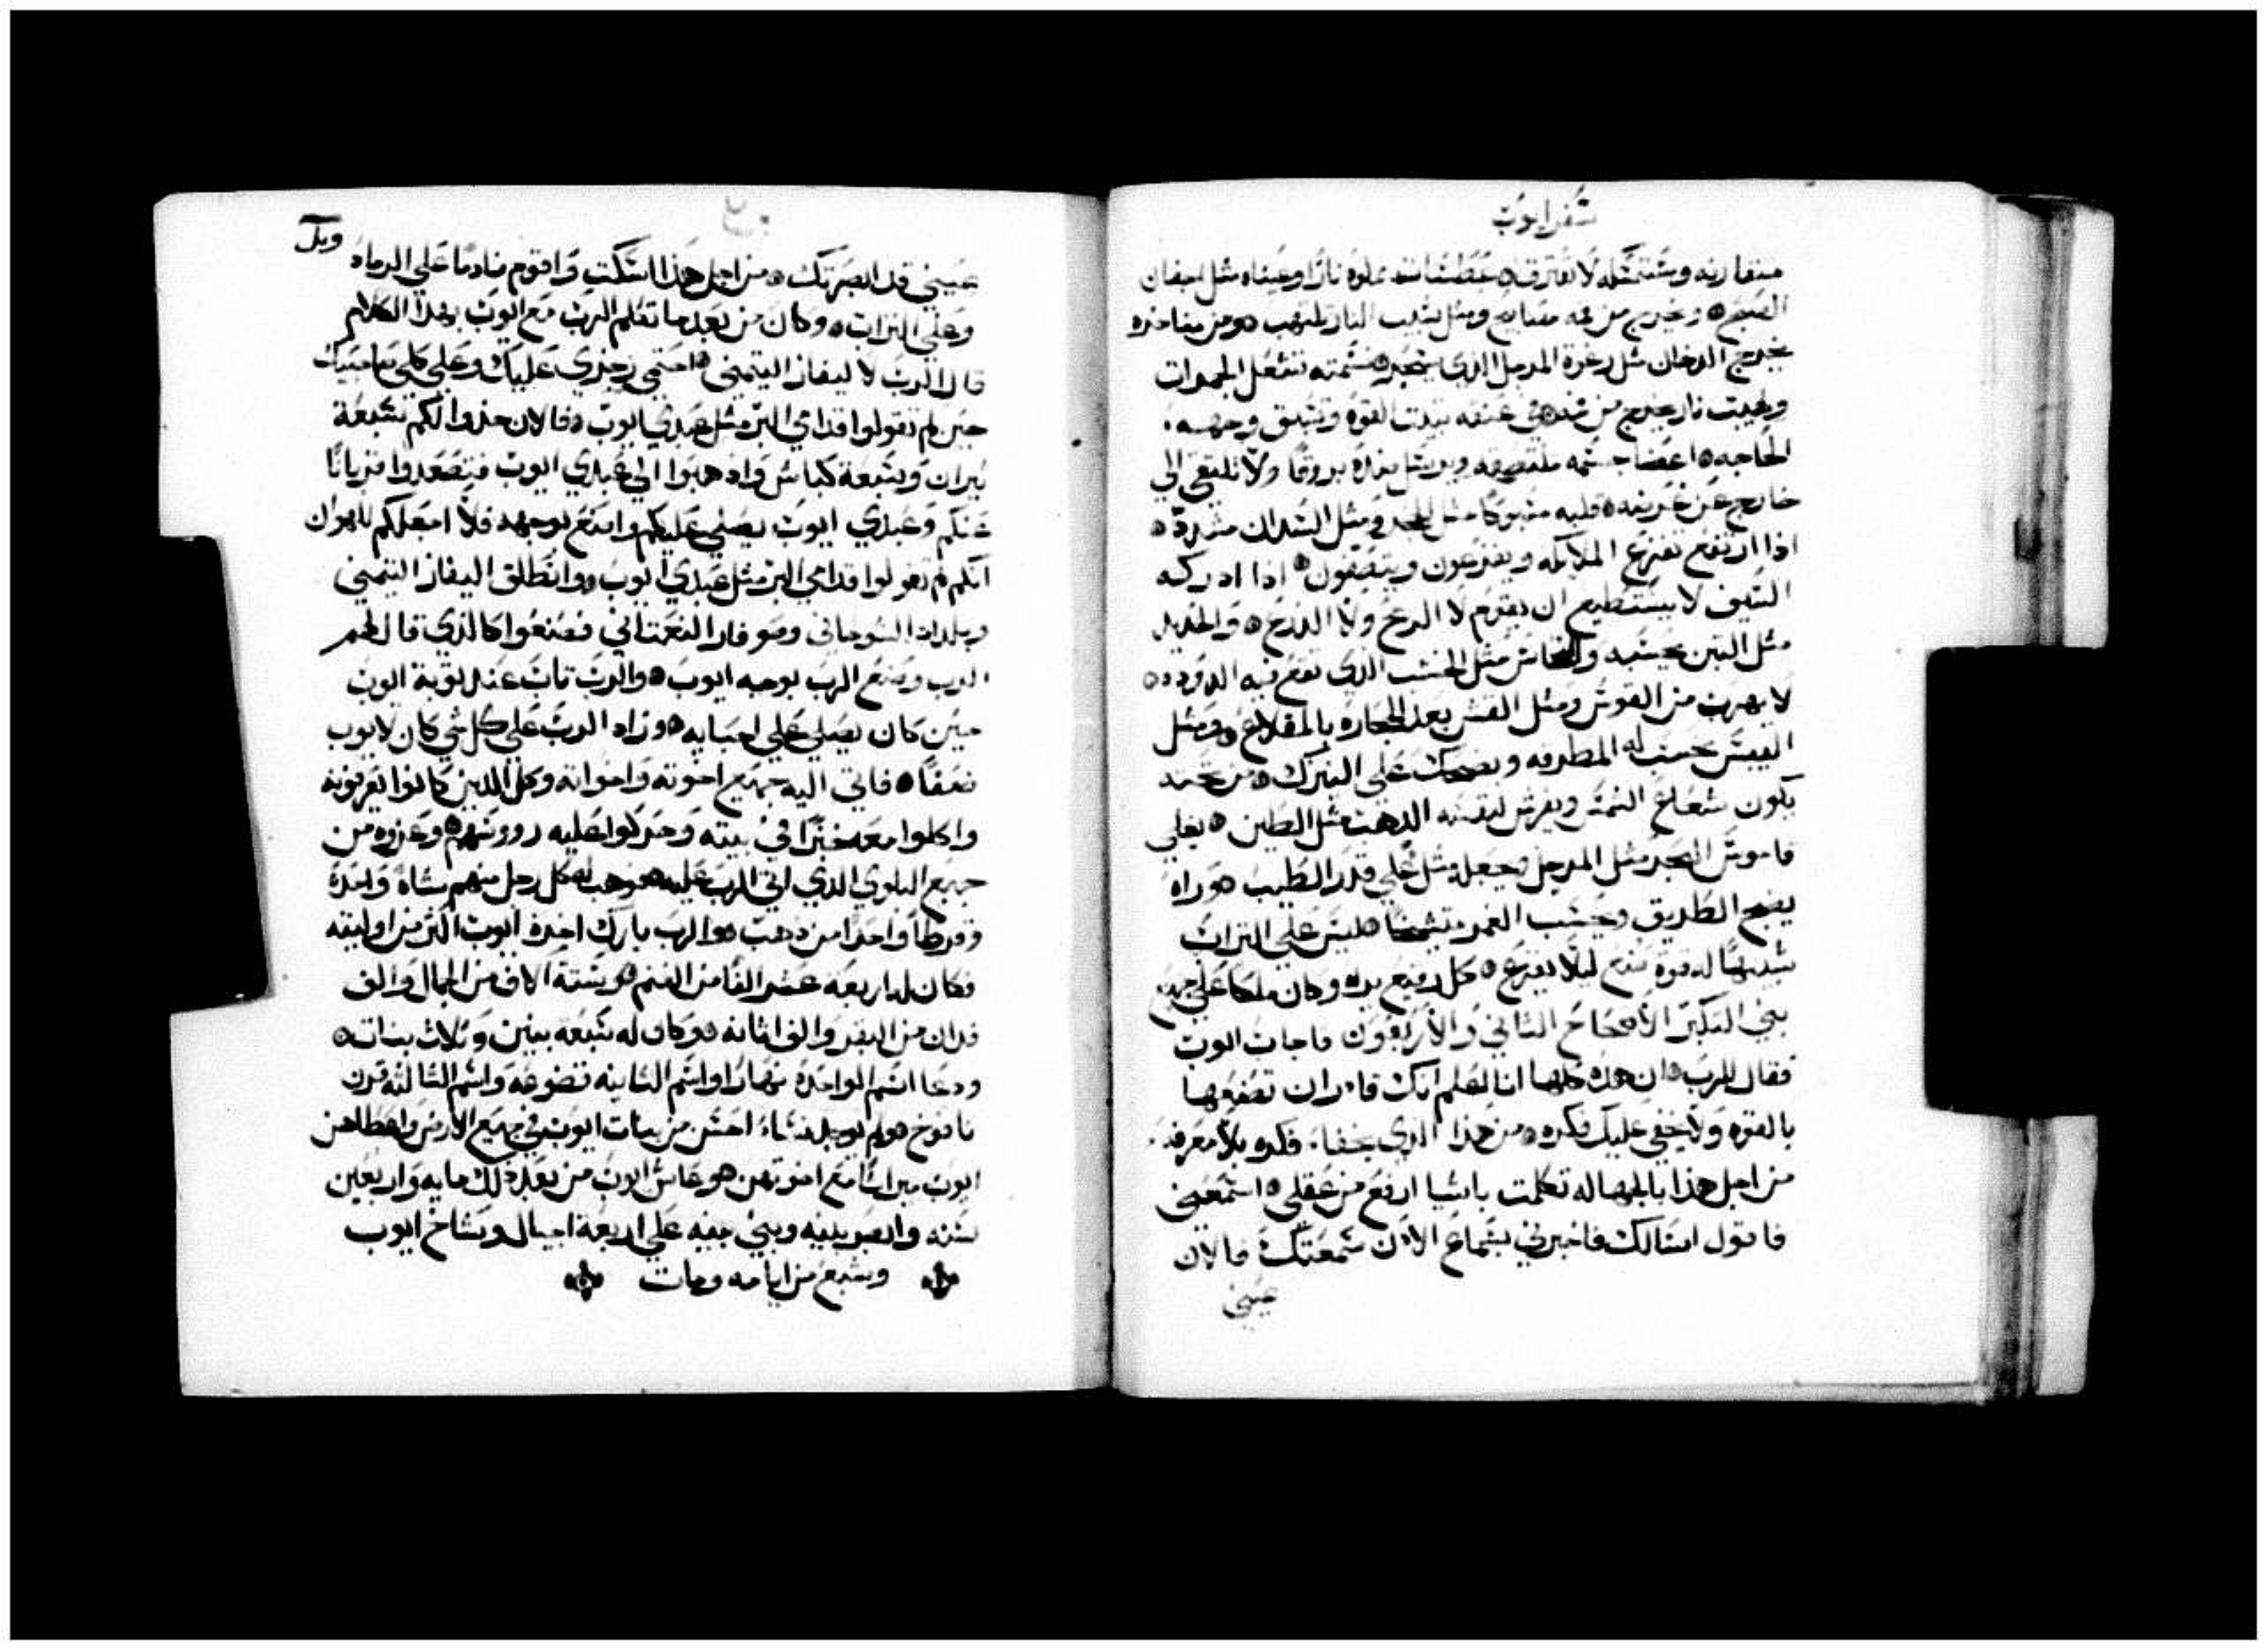 سفر ايوب
متقارنه وستمسكه لا تفترق عطسات مملوه نارا وعيناه مثل اجفان
الصبح ويخرج من فمه مصابيح ومثل لهيب النار يلتهب ومن مناخره
يخرج الدخان مثل زخرة المرجل الذي يتقد نسمته تشعل الجمرات
ولهيب نار يخرج من فمه في عنقه تبيت القوه وتسبق وجهه
الحاجه اعضا جسمه ملتصقه ويرسل بروقا ولا تلتقي الي
خارج عن قلبه مثل الحجر ومثل السندان
اذا ارتفع تفزع الملايكه ويفزعون اذا ادركه
السيف لا يستطيع ان يقوم لا الرمح ولا الدرع والحديد
مثل التبن يحسبه والنحاس مثل الخشب الذي تقع فيه الدوده
لا يهرب من القوس ومثل القش يعد الحجاره بالمقلاع ومثل
القش يحسب له المطرقه ويضحك علي النيزك من تحته
يكون شعاع الشمس ويفرش لنفسه الذهب مثل الطين يغلي
قاموس البحر مثل المرجل ويجعله مثل غلي قدر الطيب وراه
يضي الطريق ويحسب الغمر متشيخا ليس علي التراب
شبيها له قوة صنع ليلا يفزع كل رفيع يراه وكان ملكا علي جميع
بني التكبر الاصحاح الثاني والاربعون فاجاب ايوب
فقال للرب ان هذه كلها انا اعلم انك قادران تصنعها
بالقوه ولا يخفي عليك فكره من هذا الذي يخفا فكره بلا معرفه
من اجل هذا بالجهاله تكلمت باشيا ارفع من عقلي استمعني
فاقول اسالك فاخبرني بسماع الاذن سمعتك فالان
عيني
ويل
عيني قد ابصرتك من اجل هذا اسكت واقوم نادما علي الرماد
وعلي التراب وكان من بعد ما تكلم الرب مع ايوب بهذا الكلام
قال الرب لاليفاز اليتمني احتمي رجزي عليك وعلي كلي صاحبيك
حين لم تقولوا قدامي البر مثل عبدي ايوب فالان خذوا لكم سبعة
تيران وسبعة كباش واذهبوا الي عبدي ايوب فتصعدوا قربانا
عنكم وعبدي ايوب يصلي عليكم واصنع بوجهه فلا اجعلكم للهوان
انكم لم تقولوا قدامي البر مثل عبدي ايوب وانطلق اليفاز التيمني
وبلداد الشوحاني وصوفار النعمتاني فصنعوا كالذي قال لهم
الرب وصنع الرب بوجه ايوب والرب تاب عند توبة ايوب
حين كان يصلي علي احبايه وزاد الرب علي كل شي كان لايوب
ضعفا فاتي اليه جميع اخوته واخواته وكل الذين كانوا يعرفونه
واكلوا معه خبزا في بيته وحركوا عليه رووسهم وعزوه من
جميع البلاوي الذي اتي الرب عليه ووهب له كل رجل منهم شاة واحدة
وقرطا واحدا من ذهب والرب بارك اخرة ايوب اكثر من اوليته
فكان له اربعة عشر الفا من الغنم وستة الاف من الجمال والف
فدان من البقر والف اتانه وكان له سبعه بنين وثلاث بنات
ودعا اسم الواحدة نهارا واسم الثانيه قضوعه واسم الثالثه قرن
نافوخ ولم يوجد نساء احسن من بنات ايوب في جميع الارض واعطاهن
ايوب ميراثا مع اخوتهن وعاش ايوب من بعد ذلك مايه واربعين
سنه وابصر بنيه وبني بنيه علي اربعة اجيال وشاخ ايوب
وشبع من ايامه ومات